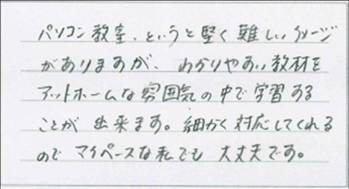 パソコン教室、というと堅く難しいイメージ
がありますが、わかりやすい教材を
アットホームな雰囲気の中で学習する
ことが出来ます。細かく対応してくれる
のでマイペースな私でも大丈夫です。